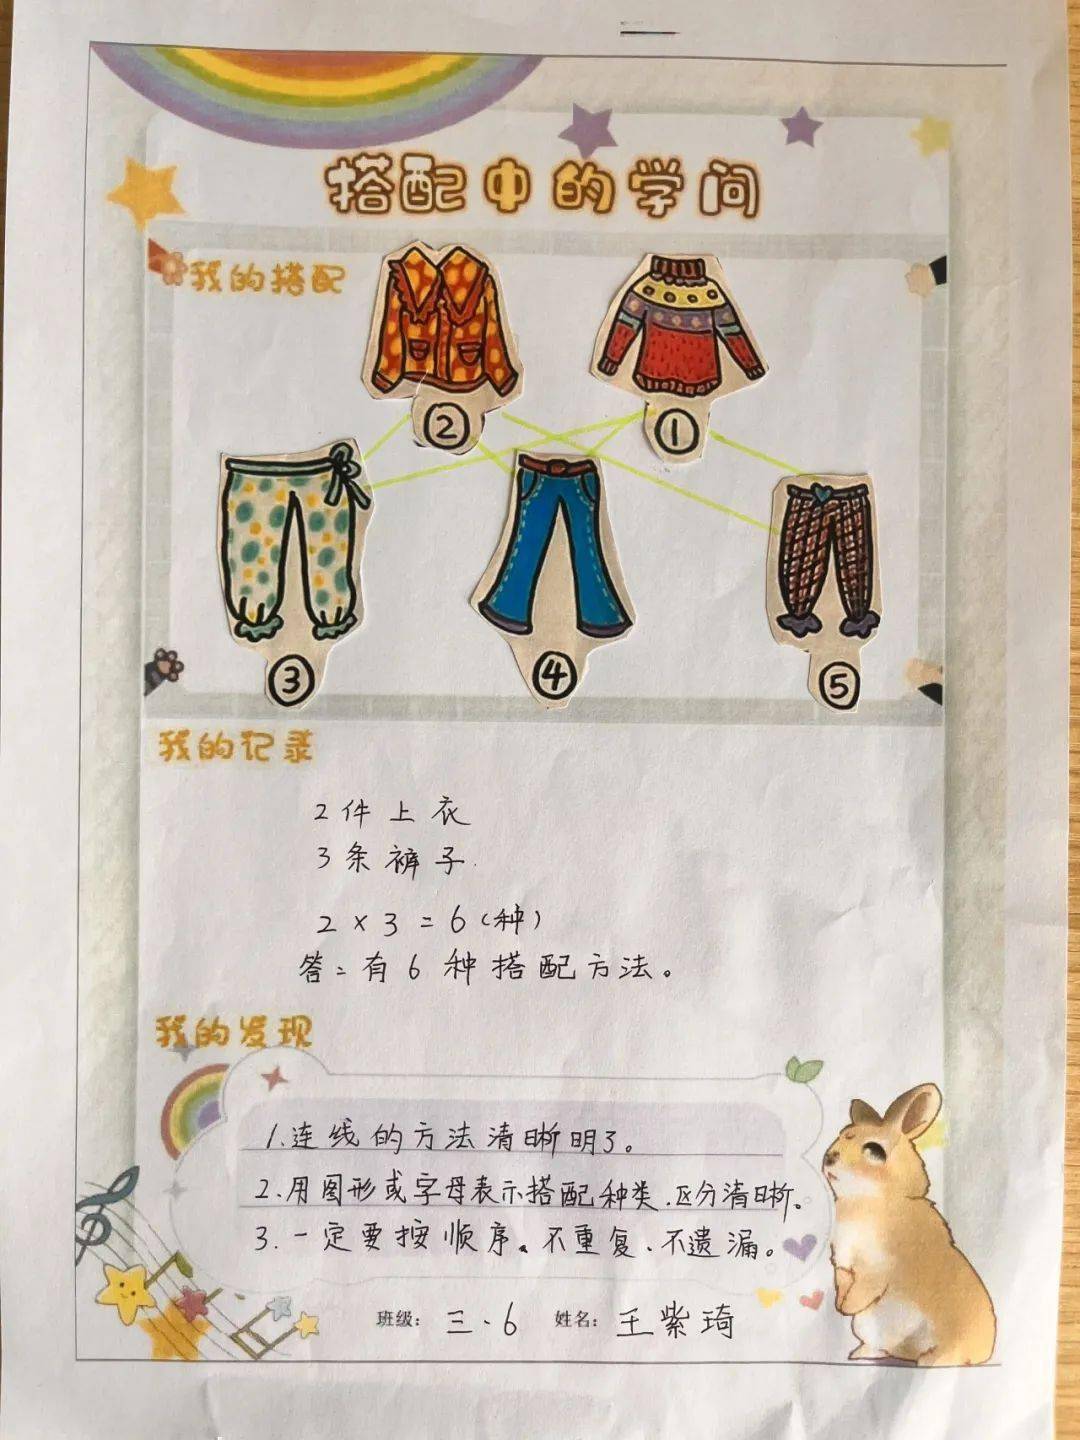 搭配中的学问
我的搭配
② ①
③ ④ ⑤
我的记录
2件上衣
3条裤子.
2×3=6(种)
答:有6种搭配方法。
我的发现
1.连线的方法清晰明了。
2.用图形或字母表示搭配种类.区分清晰。
3.一定要按顺序、不重复、不遗漏。
班级：三.6 姓名：王紫琦